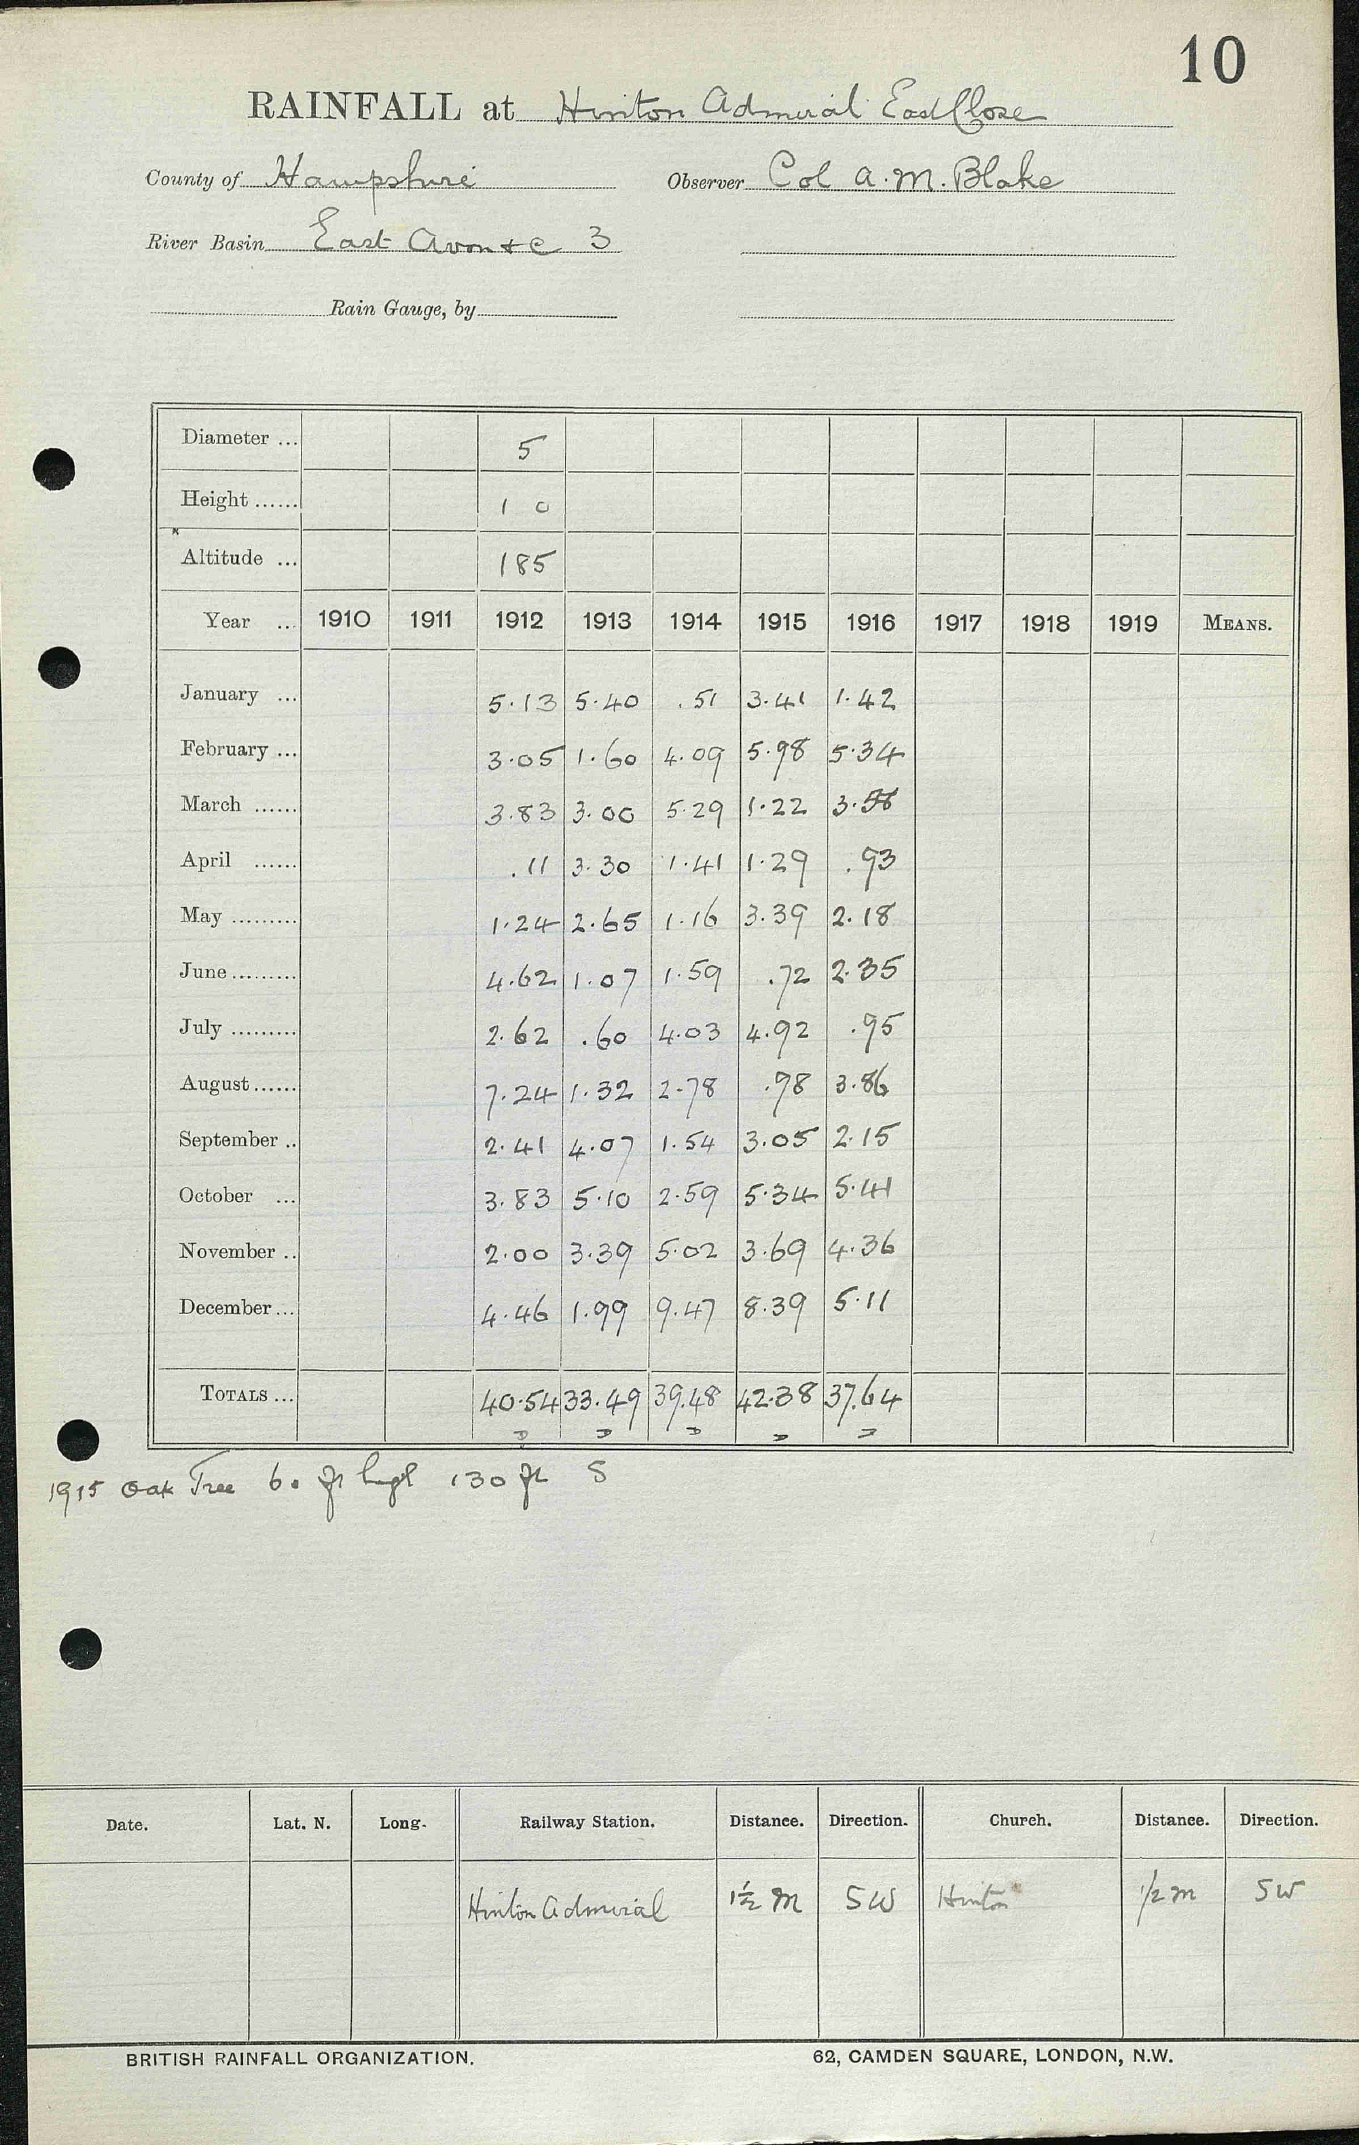 10
RAINFALL at Hinton Admiral East Close
County of Hampshire Observer Col A.M. Blake
River Basin East Avon & c 3
Rain Gauge, by
Diameter ... 5
Height ...... 1 0
Altitude ... 185
Year ... 1910 1911 1912 1913 1914 1915 1916 1917 1918 1919 MEANS.
January ... 5.13 5.40 .51 3.41 1.42
February ... 3.05 1.60 4.09 5.98 5.34
March ...... 3.83 3.00 5.29 1.22 3.58
April ...... .11 3.30 1.41 1.29 .93
May ......... 1.24 2.65 1.16 3.39 2.18
June ......... 4.62 1.07 1.59 .72 2.35
July ......... 2.62 .60 4.03 4.92 .95
August ...... 7.24 1.32 2.78 .98 3.86
September .. 2.41 4.07 1.54 3.05 2.15
October ... 3.83 5.10 2.59 5.34 5.41
November .. 2.00 3.39 5.02 3.69 4.36
December ... 4.46 1.99 9.47 8.39 5.11
TOTALS ... 40.54 33.49 39.48 42.38 37.64
1915 Oak Tree 60 ft high 130 ft S
Date. Lat. N. Long. Railway Station. Distance. Direction. Church. Distance. Direction.
Hinton Admiral 1½ M SW Hinton 1/2 m SW
BRITISH RAINFALL ORGANIZATION. 62, CAMDEN SQUARE, LONDON, N.W.